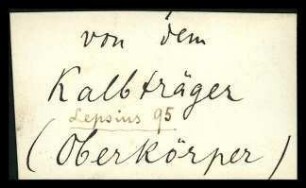 von dem
Kalbträger
Lepsius 95
(Oberkörper)